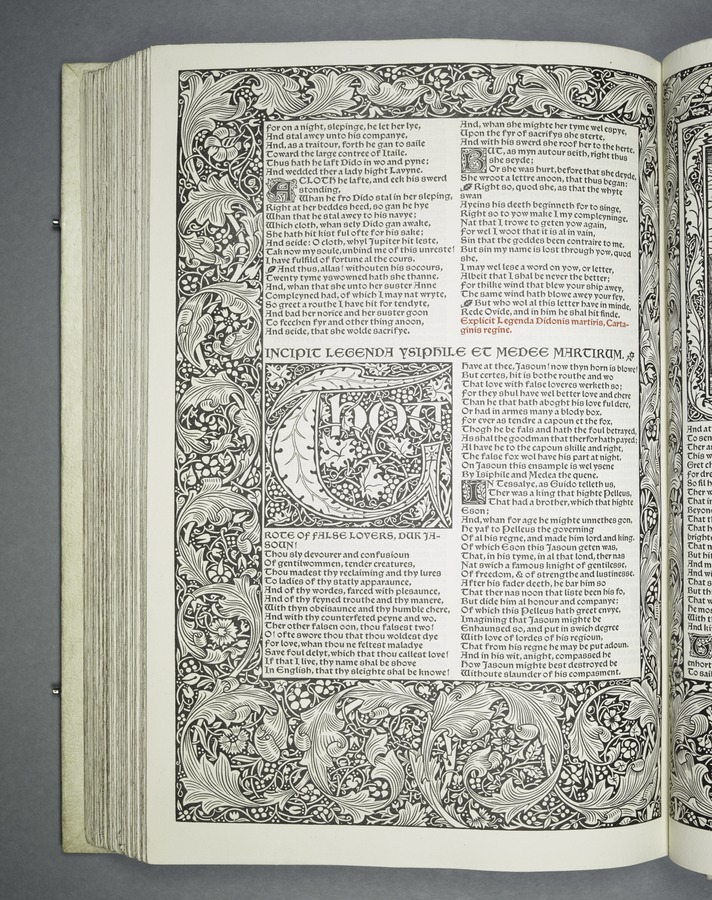 For on a night, slepinge, he let her lye,
And stal awey unto his companye,
And, as a traitour, forth he gan to saile
Toward the large contree of Itaile.
Thus hath he laft Dido in wo and pyne;
And wedded ther a lady hight Lavyne.
A CLOTH he lafte, and eek his swerd
stonding,
Whan he fro Dido stal in her sleping,
Right at her beddes heed, so gan he hye
Whan that he stal awey to his navye;
Which cloth, whan sely Dido gan awake,
She hath hit kist ful ofte for his sake;
And seide: O cloth, whyl Jupiter hit leste,
Tak now my soule, unbind me of this unreste!
I have fulfild of fortune al the cours.
And thus, allas! withouten his socours,
Twenty tyme yswowned hath she thanne.
And, whan that she unto her suster Anne
Compleyned had, of which I may not wryte,
So greet a routhe I have hit for tendyte,
And bad her norice and her suster goon
To fecchen fyr and other thing anoon,
And seide, that she wolde sacrifye.
And, whan she mighte her tyme wel espye,
Upon the fyr of sacrifys she sterte,
And with his swerd she roof her to the herte.
BUT, as myn autour seith, right thus
she seyde;
Or she was hurt, before that she deyde,
She wroot a lettre anoon, that thus began:
Right so, quod she, as that the whyte
swan
Ayeins his deeth beginneth for to singe,
Right so to yow make I my compleyninge.
Nat that I trowe to geten yow again,
For wel I woot that it is al in vain,
Sin that the goddes been contraire to me.
But sin my name is lost through yow, quod
she,
I may wel lese a word on yow, or letter,
Albeit that I shal be never the better;
For thilke wind that blew your ship awey,
The same wind hath blowe awey your fey.
But who wol al this letter have in minde,
Rede Ovide, and in him he shal hit finde.
Explicit Legenda Didonis martiris, Carta-
ginis regine.
INCIPIT LEGENDA YSIPHILE ET MEDEE MARTIRUM.
Thou
ROTE OF FALSE LOVERS, DUK JA-
SOUN!
Thou sly devourer and confusioun
Of gentilwommen, tender creatures,
Thou madest thy reclaiming and thy lures
To ladies of thy statly apparaunce,
And of thy wordes, farced with plesaunce,
And of thy feyned trouthe and thy manere,
With thyn obeisaunce and thy humble chere,
And with thy counterfeted peyne and wo,
Ther other falsen oon, thou falsest two!
O! ofte swore thou that thou woldest dye
For love, whan thou ne feltest maladye
Save foul delyt, which that thou callest love!
If that I live, thy name shal be shove
In English, that thy sleighte shal be knowe!
Have at thee, Jasoun! now thyn horn is blowe!
But certes, hit is bothe routhe and wo
That love with false loveres werketh so;
For they shul have wel better love and chere
Than he that hath aboght his love ful dere,
Or had in armes many a blody box.
For ever as tendre a capoun et the fox,
Thogh he be fals and hath the foul betrayed,
As shal the goodman that therfor hath payed;
Al have he to the capoun skille and right,
The false fox wol have his part at night.
On Jasoun this ensample is wel ysene
By Isiphile and Medea the quene.
IN Tessalye, as Guido telleth us,
Ther was a king that highte Pelleus,
That had a brother, which that highte
Eson;
And, whan for age he mighte unnethes gon,
He yaf to Pelleus the governing
Of al his regne, and made him lord and king.
Of which Eson this Jasoun geten was,
That, in his tyme, in al that lond, ther nas
Nat swich a famous knight of gentilesse,
Of freedom, & of strengthe and lustinesse.
After his fader deeth, he bar him so
That ther nas noon that liste been his fo,
But dide him al honour and companye;
Of which this Pelleus hath greet envye,
Imagining that Jasoun mighte be
Enhaunsed so, and put in swich degree
With love of lordes of his regioun,
That from his regne he may be put adoun.
And in his wit, anight, compassed he
How Jasoun mighte best destroyed be
Withoute slaunder of his compasment.